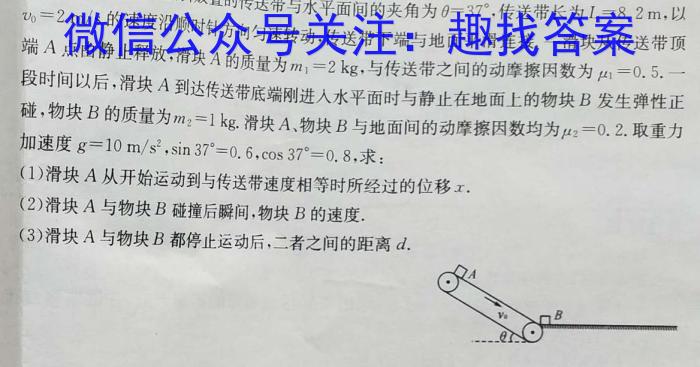 放置的传送带与水平面间的夹角为θ=37°,传送带长为L=8.2m,以
v₀=2 m/s的速度沿顺时针方向匀速转动,传送带下端与地面
端A点由静止释放,滑块A的质量为m₁=2 kg,与传送带之间的动摩擦因数为μ₁=0.5.一
微信公众号关注：趣找答案
段时间以后,滑块A到达传送带底端刚进入水平面时与静止在地面上的物块B发生弹性正
碰,物块B的质量为m₂=1 kg.滑块A、物块B与地面间的动摩擦因数均为μ₂=0.2.取重力
加速度g=10 m/s²,sin 37°=0.6,cos 37°=0.8,求:
(1)滑块A从开始运动到与传送带速度相等时所经过的位移x.
(2)滑块A与物块B碰撞后瞬间,物块B的速度.
(3)滑块A与物块B都停止运动后,二者之间的距离d.
A
v₀
B
θ